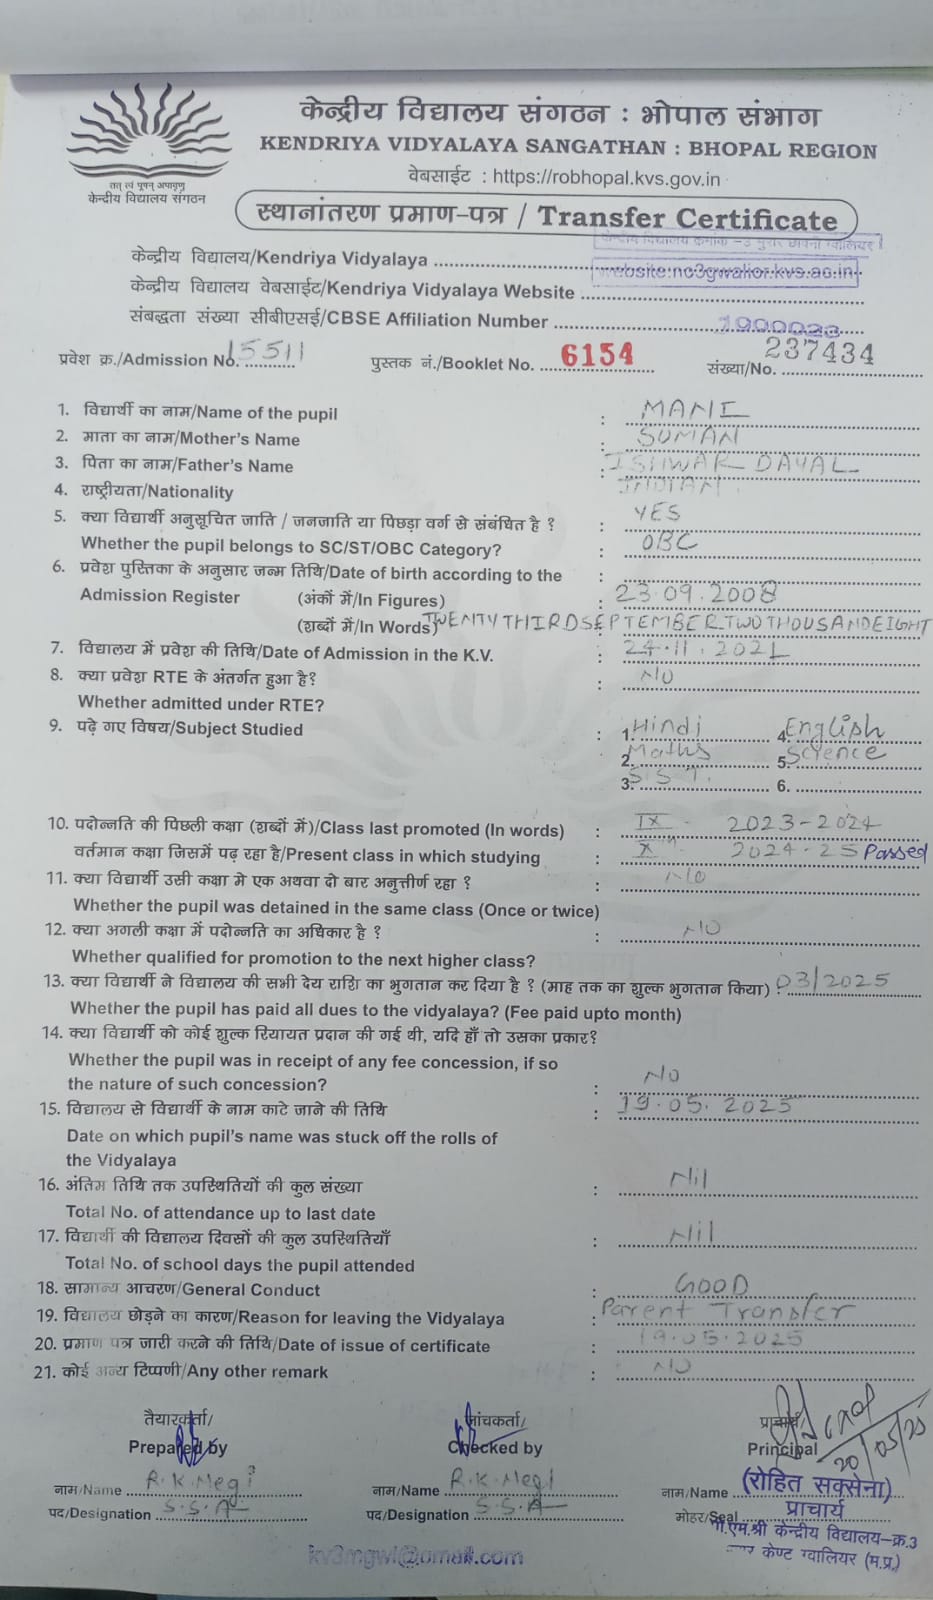 तत् त्वं पूषन् अपावृणु
केन्द्रीय विद्यालय संगठन
केन्द्रीय विद्यालय संगठन : भोपाल संभाग
KENDRIYA VIDYALAYA SANGATHAN : BHOPAL REGION
वेबसाईट : https://robhopal.kvs.gov.in
स्थानांतरण प्रमाण-पत्र / Transfer Certificate
केन्द्रीय विद्यालय/Kendriya Vidyalaya केन्द्रीय विद्यालय क्रमांक -3 मुरार छावनी ग्वालियर
केन्द्रीय विद्यालय वेबसाईट/Kendriya Vidyalaya Website website:no3gwalior.kvs.ac.in
संबद्धता संख्या सीबीएसई/CBSE Affiliation Number 1000023
प्रवेश क्र./Admission No. 15511 पुस्तक नं./Booklet No. 6154 संख्या/No. 237434
1. विद्यार्थी का नाम/Name of the pupil : MANI
2. माता का नाम/Mother's Name : SUMAN
3. पिता का नाम/Father's Name : ISHWAR DAYAL
4. राष्ट्रीयता/Nationality INDIAN
5. क्या विद्यार्थी अनुसूचित जाति / जनजाति या पिछड़ा वर्ग से संबंधित है ? : YES
Whether the pupil belongs to SC/ST/OBC Category? : OBC
6. प्रवेश पुस्तिका के अनुसार जन्म तिथि/Date of birth according to the :
Admission Register (अंकों में/In Figures) : 23.09.2008
(शब्दों में/In Words) TWENTY THIRD SEPTEMBER TWO THOUSAND EIGHT
7. विद्यालय में प्रवेश की तिथि/Date of Admission in the K.V. : 24.11.2021
8. क्या प्रवेश RTE के अंतर्गत हुआ है? : NO
Whether admitted under RTE?
9. पढ़े गए विषय/Subject Studied : 1. Hindi 4. English
2. Maths 5. Science
3. S.S.T. 6.
10. पदोन्नति की पिछली कक्षा (शब्दों में)/Class last promoted (In words) : IX - 2023-2024
वर्तमान कक्षा जिसमें पढ़ रहा है/Present class in which studying : X 2024-25 Passed
11. क्या विद्यार्थी उसी कक्षा मे एक अथवा दो बार अनुत्तीर्ण रहा ? : No
Whether the pupil was detained in the same class (Once or twice)
12. क्या अगली कक्षा में पदोन्नति का अधिकार है ? : NO
Whether qualified for promotion to the next higher class?
13. क्या विद्यार्थी ने विद्यालय की सभी देय राशि का भुगतान कर दिया है ? (माह तक का शुल्क भुगतान किया) : 03/2025
Whether the pupil has paid all dues to the vidyalaya? (Fee paid upto month)
14. क्या विद्यार्थी को कोई शुल्क रियायत प्रदान की गई थी, यदि हाँ तो उसका प्रकार?
Whether the pupil was in receipt of any fee concession, if so
the nature of such concession? : No
15. विद्यालय से विद्यार्थी के नाम काटे जाने की तिथि : 19.05.2025
Date on which pupil's name was stuck off the rolls of
the Vidyalaya
16. अंतिम तिथि तक उपस्थितियों की कुल संख्या : Nil
Total No. of attendance up to last date
17. विद्यार्थी की विद्यालय दिवसों की कुल उपस्थितियाँ : Nil
Total No. of school days the pupil attended
18. सामान्य आचरण/General Conduct : GOOD
19. विद्यालय छोड़ने का कारण/Reason for leaving the Vidyalaya : Parent Transfer
20. प्रमाण पत्र जारी करने की तिथि/Date of issue of certificate : 19.05.2025
21. कोई अन्य टिप्पणी/Any other remark : NO
तैयारकर्ता/ जांचकर्ता/ प्राचार्य/
Prepared by Checked by Principal 20/05/25
नाम/Name R.K.Negi नाम/Name R.K.Negi नाम/Name (रोहित सक्सेना)
पद/Designation S.S.A पद/Designation S.S.A मोहर/Seal प्राचार्य
पी.एम.श्री केन्द्रीय विद्यालय-क्र.3
केण्ट ग्वालियर (म.प्र.)
kv3mgwl@gmail.com